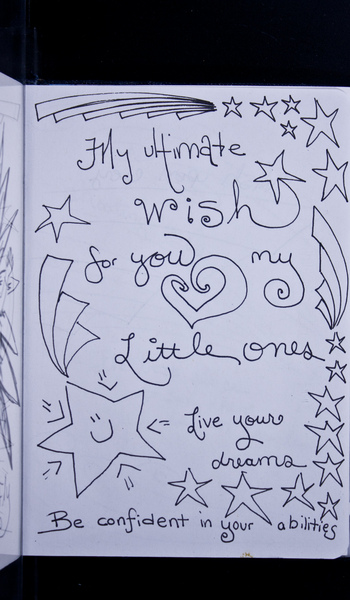 My ultimate
Wish
for you my
Little ones
Live your
dreams
Be confident in your abilities